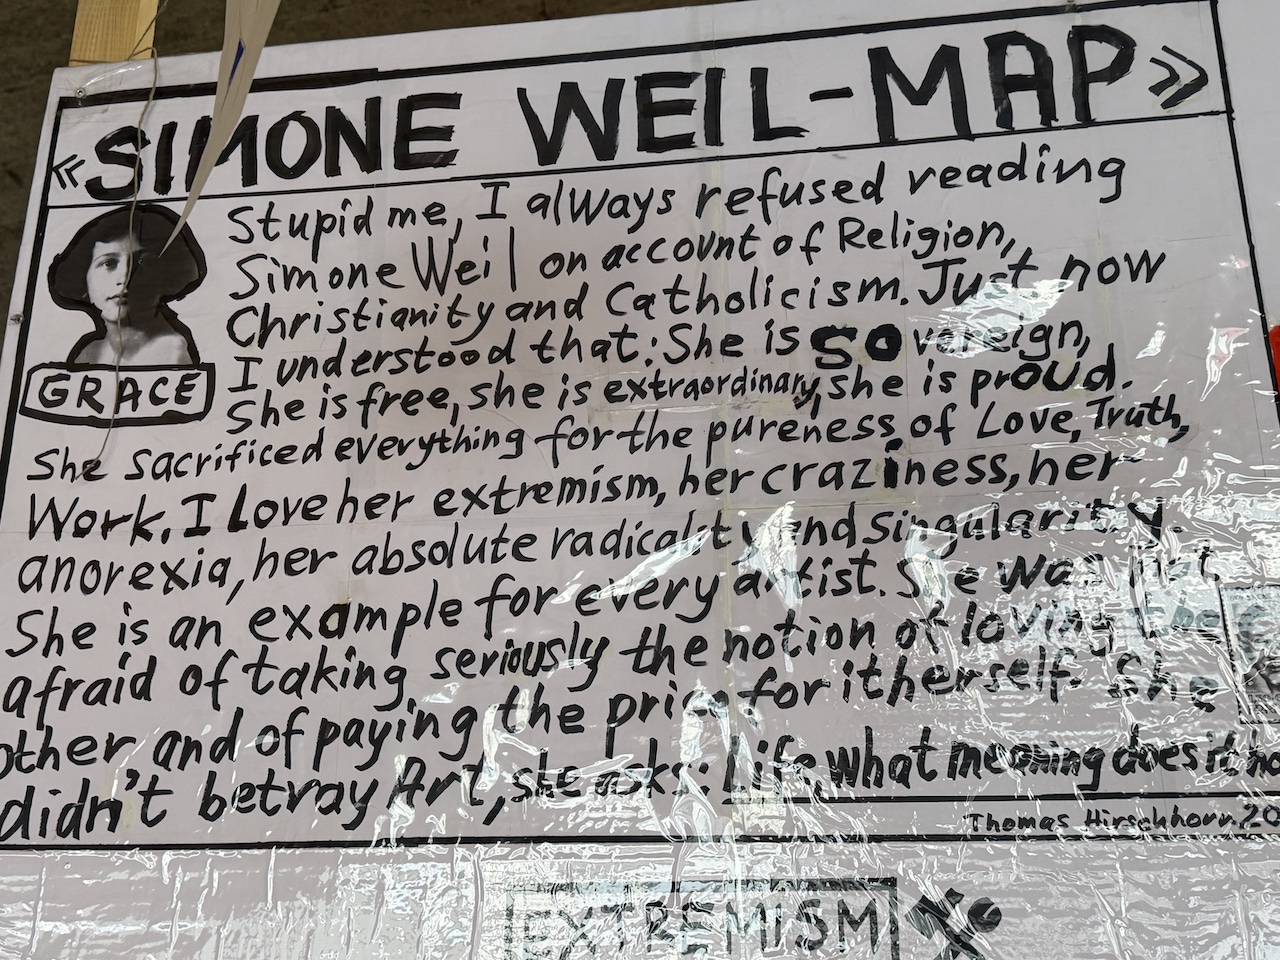 «SIMONE WEIL-MAP»
Stupid me, I always refused reading
Simone Weil on account of Religion,
Christianity and Catholicism. Just now
I understood that: She is sovereign,
She is free, she is extraordinary, she is proud.
GRACE
She sacrificed everything for the pureness of Love, Truth,
Work. I Love her extremism, her craziness, her
anorexia, her absolute radicality and singularity.
She is an example for every artist. She was not
afraid of taking seriously the notion of loving the
other and of paying the price for it herself. She
didn't betray Art, she asks: Life, what meaning does it
Thomas Hirschhorn. 20
EXTREMISM